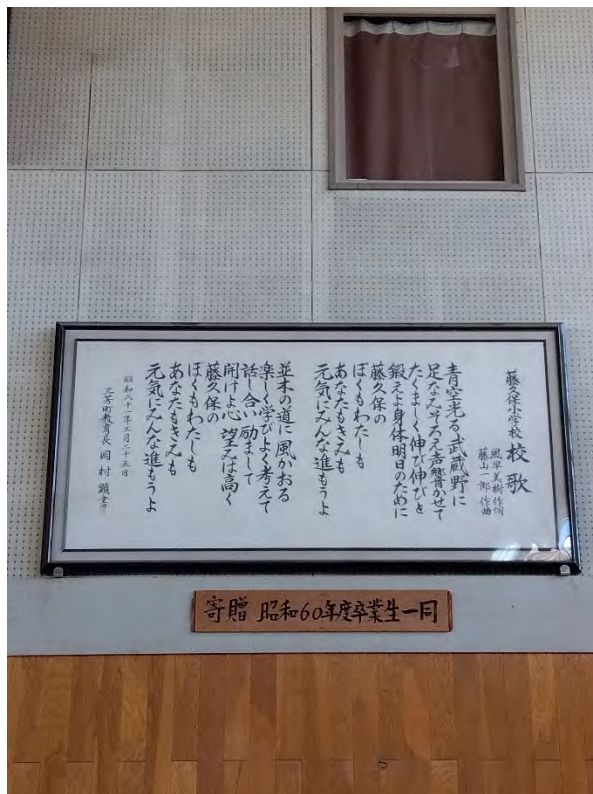 藤久保小学校 校歌
風早美樹 作詞
藤山一郎 作曲
青空光る武蔵野に
足なみそろえ声響かせて
たくましく伸び伸びと
鍛えよ身体明日のために
藤久保の
ぼくもわたしも
あなたもきみも
元気にみんな進もうよ
並木の道に風かおる
楽しく学びよく考えて
話し合い励まして
開けよ心 望みは高く
藤久保の
ぼくもわたしも
あなたもきみも
元気にみんな進もうよ
昭和六十一年三月二十五日
三芳町教育長 岡村 顕
寄贈 昭和60年度卒業生一同